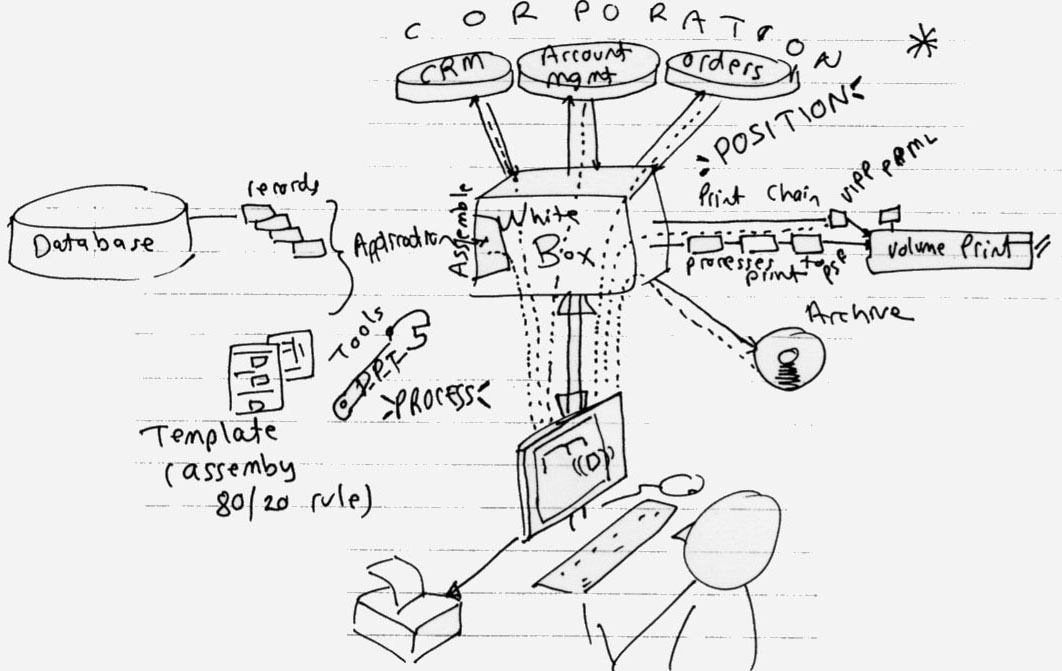 CORPORATION
CRM
Account
mgmt
orders
POSITION
records
Database
Application
Assemble
White
Box
Print Chain
VIPP PPML
processes
print
Volume Print
Archive
Tools
D.P.T
PROCESS
Template
(assemby
80/20 rule)